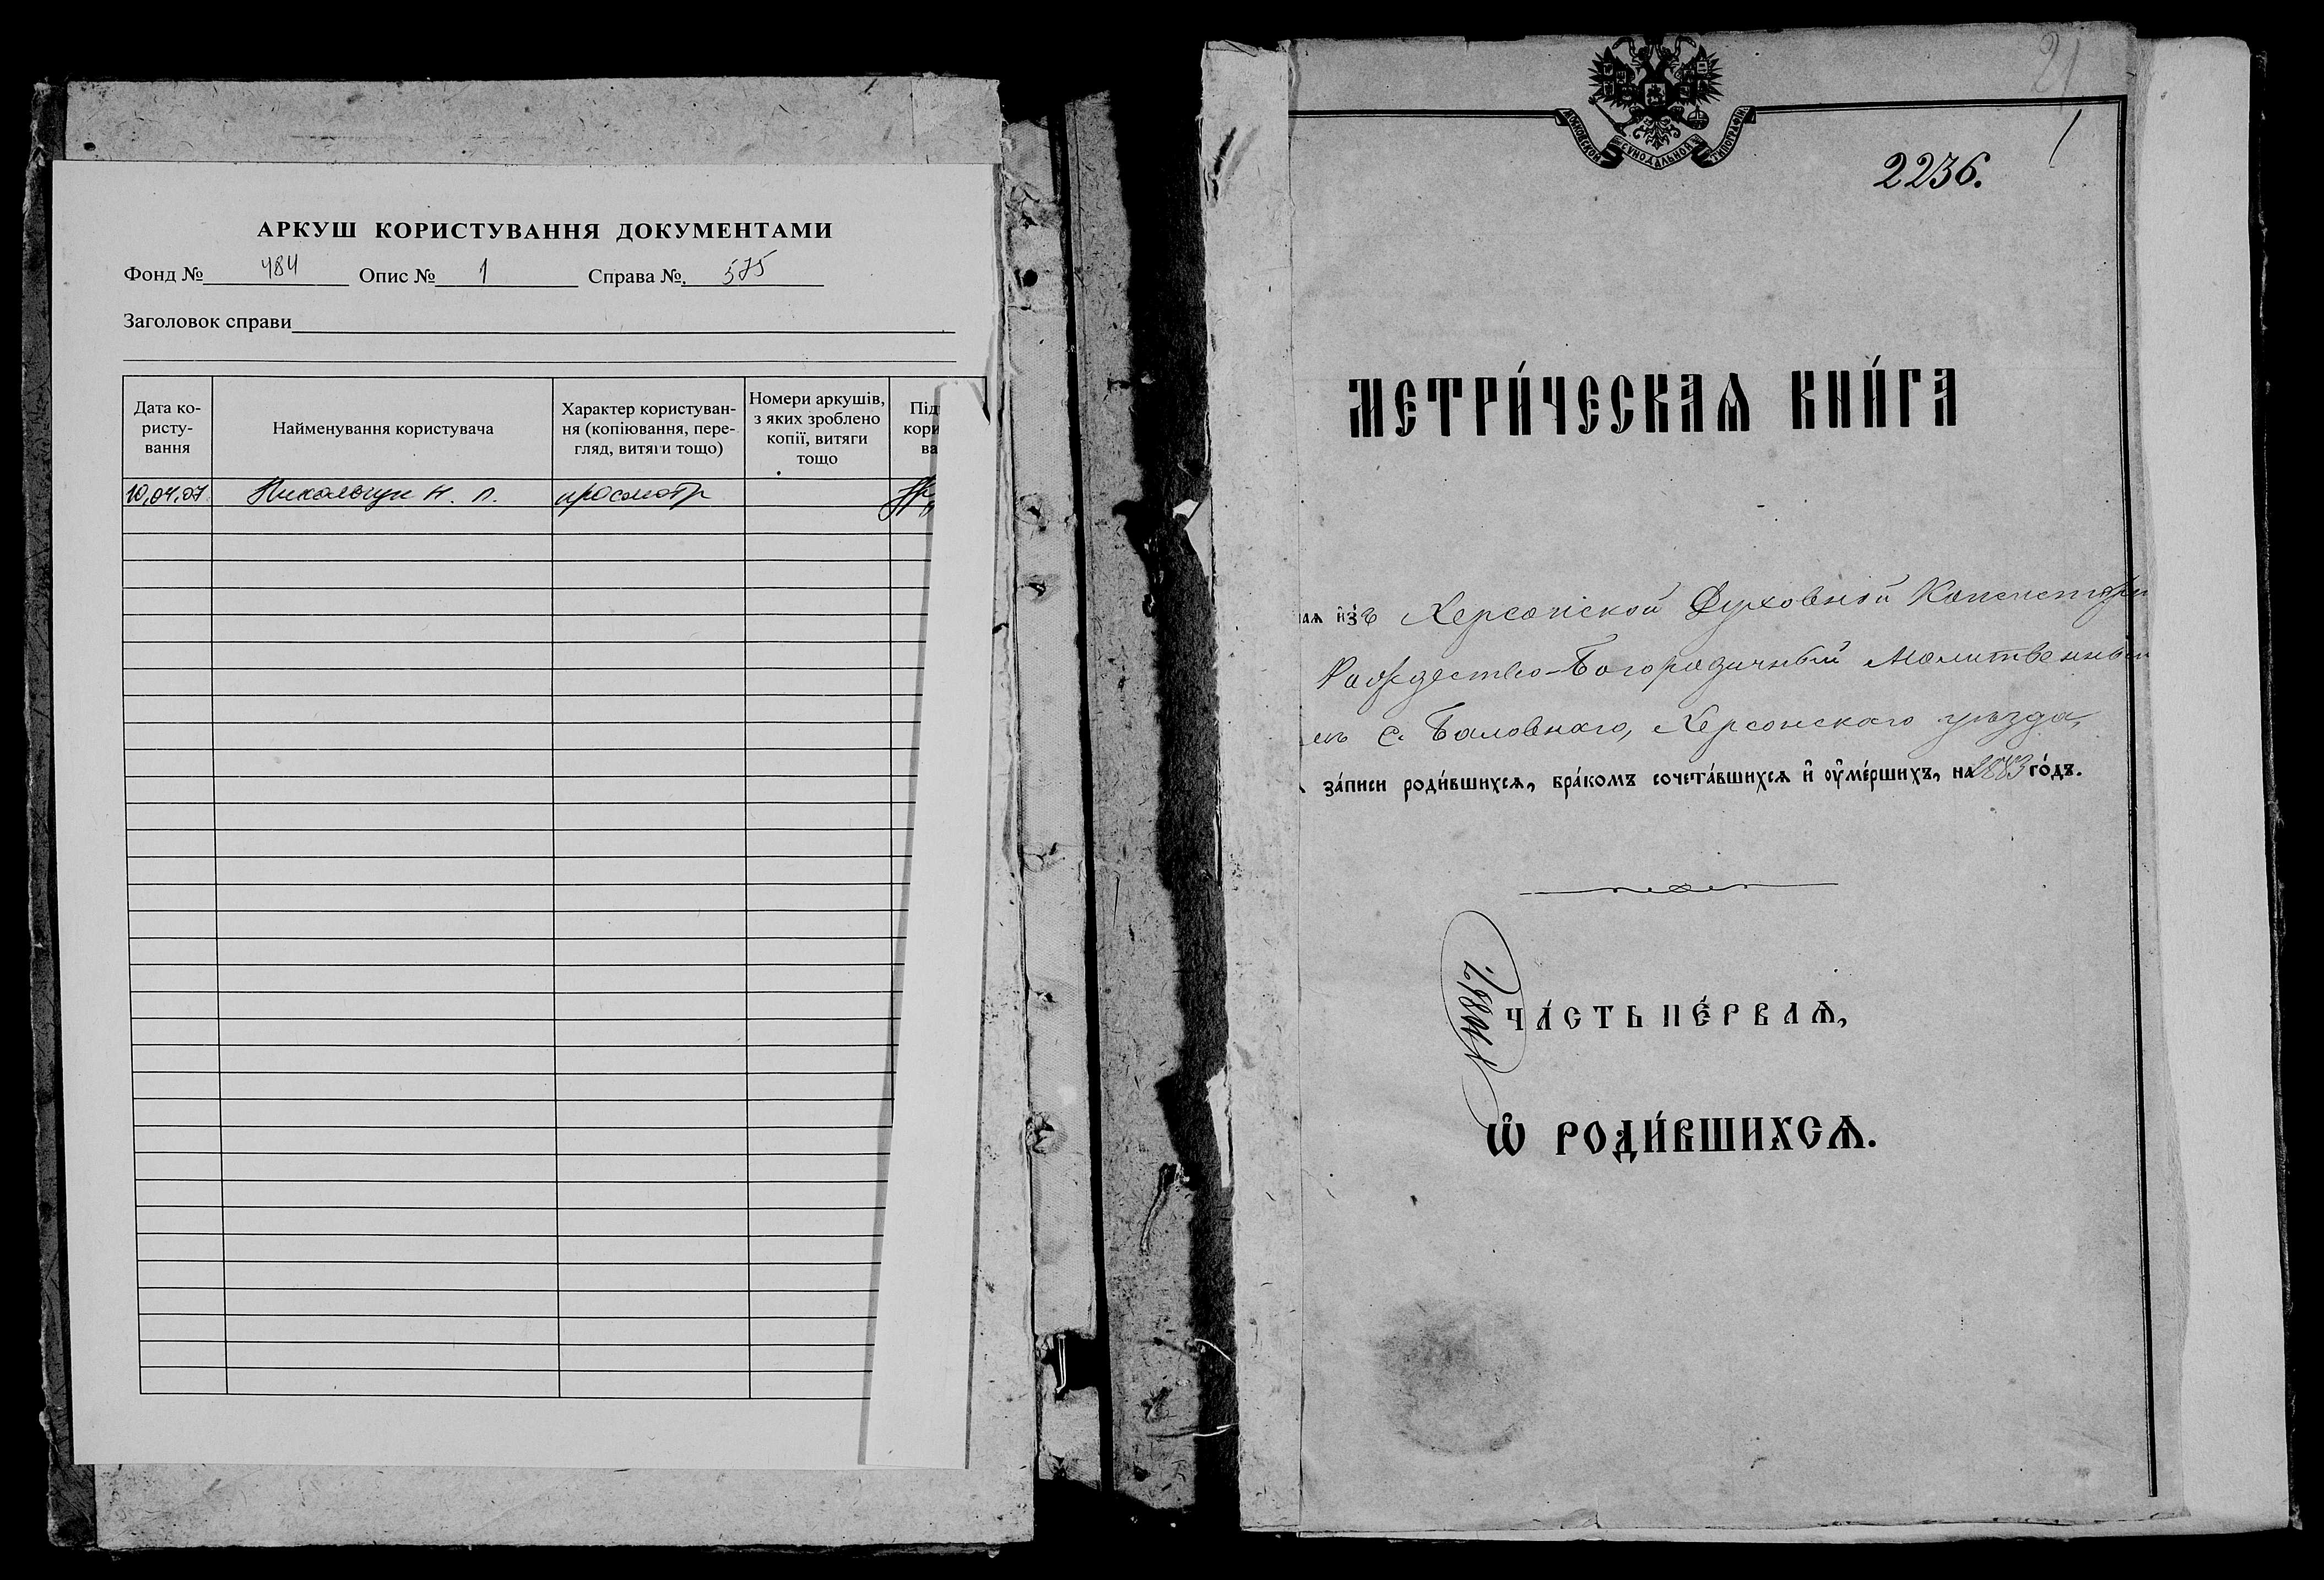 АРКУШ КОРИСТУВАННЯ ДОКУМЕНТАМИ
Фонд № 484 Опис № 1 Справа № 575
Заголовок справи
Дата ко-
ристу-
вання
Найменування користувача
Характер користуван-
ня (копіювання, пере-
гляд, витяги тощо)
Номери аркушів,
з яких зроблено
копії, витяги
тощо
Під
кори
ва
10.04.07 Н. П. просмотр
21
1
МОСКОВСКОЙ СѴНОДАЛЬНОЙ ТИПОГРАФІИ
2236.
МЕТРИ́ЧЕСКАѦ КНИ́ГА
аѧ и҆́зъ Херсонской Духовной Консисторіи
Рождество-Богородичный Молитвенный
с. Баловнаго, Херсонскаго уѣзда,
за́писи роди́вшихсѧ, бра́комъ сочета́вшихсѧ и҆ оу҆ме́ршихъ, на 1883 го́дъ.
ЧА́СТЬ ПЕ́РВАѦ,
Ѡ҆ РОДИ́ВШИХСѦ.